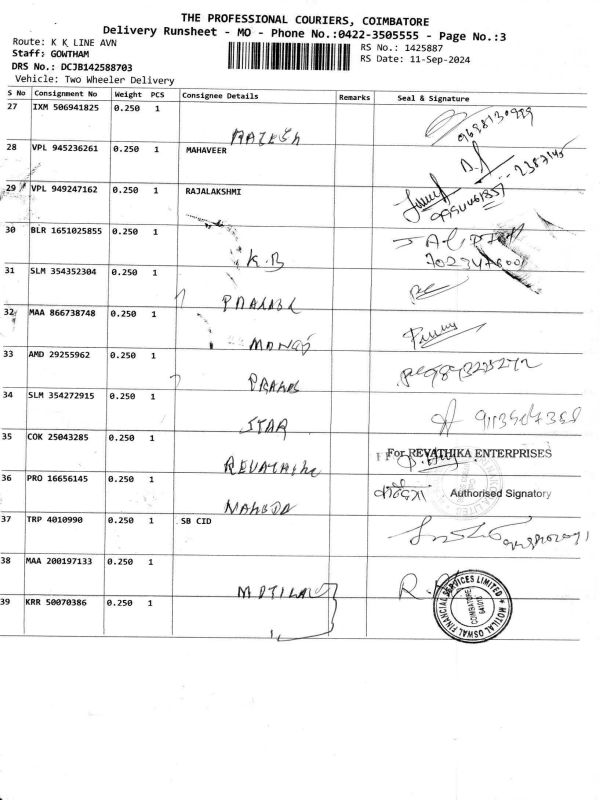 THE PROFESSIONAL COURIERS, COIMBATORE
Delivery Runsheet - MO - Phone No.:0422-3505555 - Page No.:3
Route: K K LINE AVN
RS No.: 1425887
Staff: GOWTHAM
RS Date: 11-Sep-2024
DRS No.: DCJB142588703
Vehicle: Two Wheeler Delivery
S No Consignment No Weight PCS Consignee Details Remarks Seal & Signature
27 IXM 506941825 0.250 1
RAJESH
28 VPL 945236261 0.250 1 MAHAVEER
29 VPL 949247162 0.250 1 RAJALAKSHMI
30 BLR 1651025855 0.250 1
K.B
31 SLM 354352304 0.250 1
32 MAA 866738748 0.250 1
MANOJ
33 AMD 29255962 0.250 1
34 SLM 354272915 0.250 1
STAR
35 COK 25043285 0.250 1
REVATHIKA
For REVATHIKA ENTERPRISES
36 PRO 16656145 0.250 1
Authorised Signatory
37 TRP 4010990 0.250 1 SB CID
38 MAA 200197133 0.250 1
MOTILAL
39 KRR 50070386 0.250 1
MOTILAL OSWAL FINANCIAL SERVICES LIMITED
COIMBATORE
641018